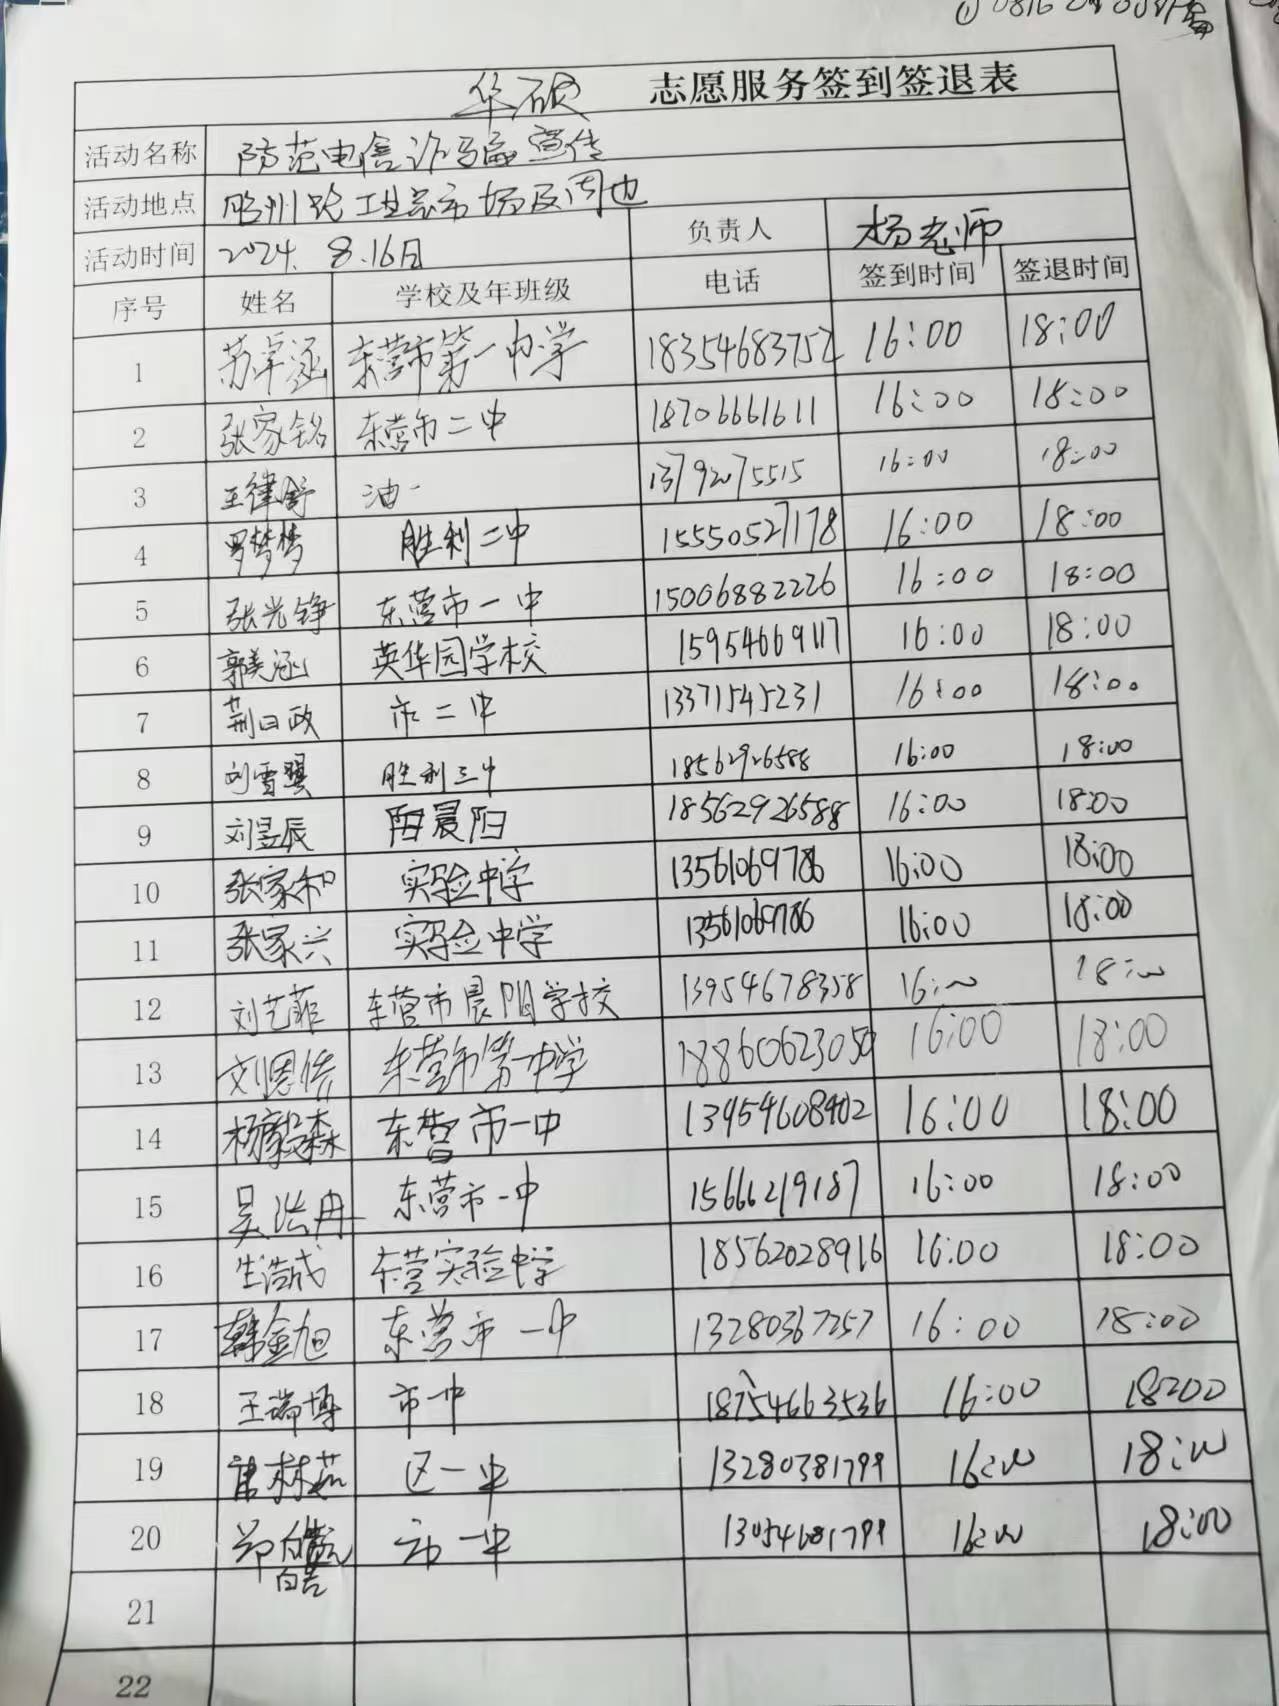 华硕 志愿服务签到签退表
活动名称 防范电信诈骗宣传
活动地点 胶州路工业品市场及周边
活动时间 2024. 8.16日 负责人 杨老师
序号 姓名 学校及年班级 电话 签到时间 签退时间
1 苏卓涵 东营市第一中学 18354683752 16:00 18:00
2 张家铭 东营市二中 18706661611 16:00 18:00
3 王律舒 油一 13792075515 16:00 18:00
4 罗梦梦 胜利二中 15550527178 16:00 18:00
5 张光铮 东营市一中 15006882226 16:00 18:00
6 郭美涵 英华园学校 15954669117 16:00 18:00
7 荆日政 市二中 13371545231 16:00 18:00
8 刘雪骐 胜利三中 18562926588 16:00 18:00
9 刘昱辰 阳晨阳 18562926588 16:00 18:00
10 张家和 实验中学 13561069786 16:00 18:00
11 张家兴 实验中学 13561069786 16:00 18:00
12 刘艺菲 东营市晨阳学校 13954678358 16:00 18:00
13 刘恩倩 东营市第一中学 18860623050 16:00 18:00
14 杨毅森 东营市一中 13954608402 16:00 18:00
15 吴浩冉 东营市一中 15666219187 16:00 18:00
16 生浩成 东营实验中学 18562028916 16:00 18:00
17 韩金旭 东营市一中 13280367257 16:00 18:00
18 王瑞博 市一中 18754663536 16:00 18:00
19 林茹 区一中 13280381799 16:00 18:00
20 郑皓 市一中 13054681799 16:00 18:00
21
22